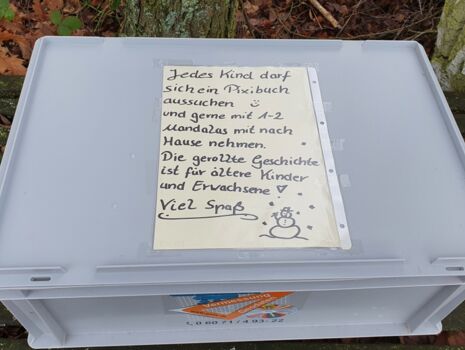 Jedes Kind darf
sich ein Pixibuch
aussuchen
und gerne mit 1-2
Mandalas mit nach
Hause nehmen.
Die gerollte Geschichte
ist für ältere Kinder
und Erwachsene
Viel Spaß
Vermessung